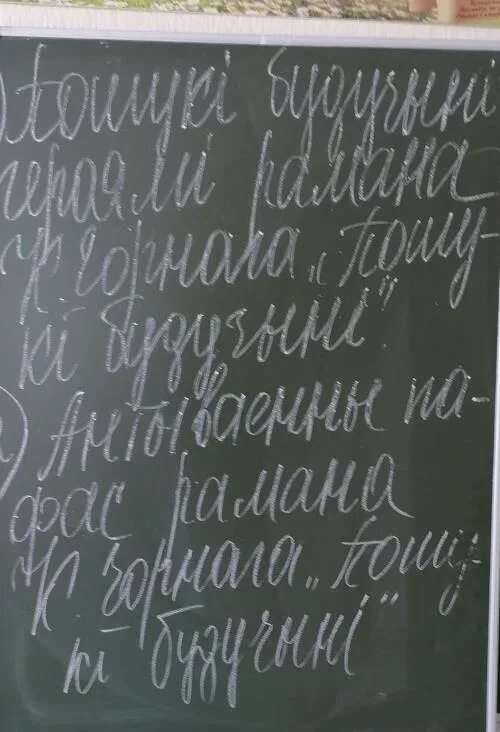 ) Пошукі будучыні
героямі рамана
К. Чорнага „Пошу-
кі будучыні".
) Антываенны па-
фас рамана
К. Чорнага „Пошу-
кі будучыні"